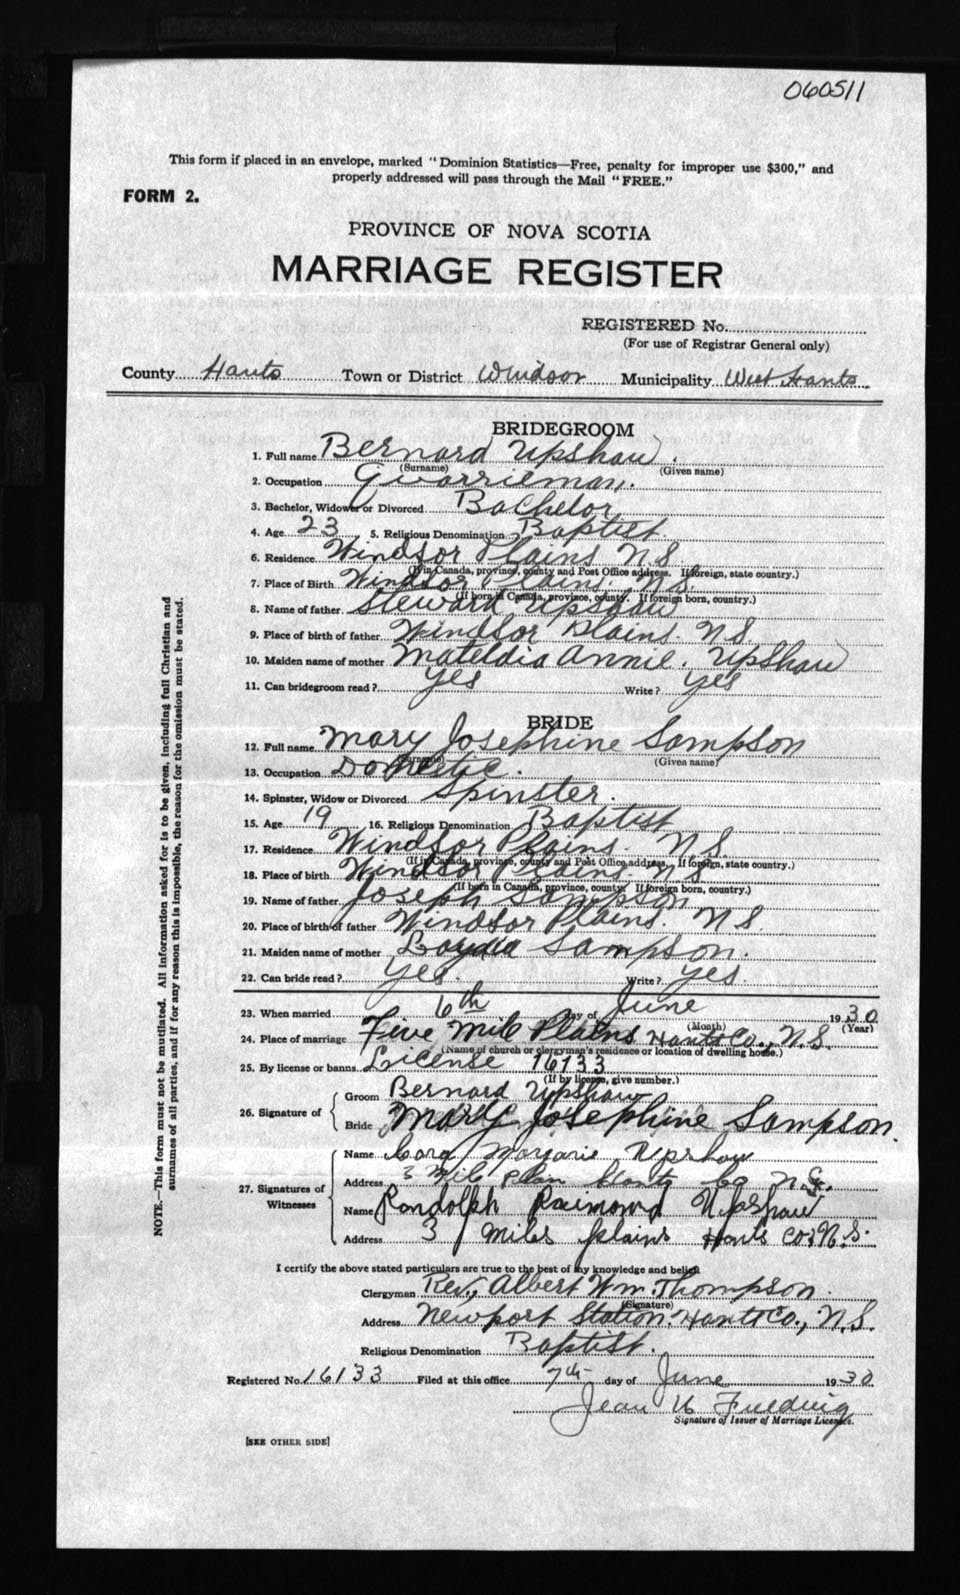 060511
This form if placed in an envelope, marked "Dominion Statistics—Free, penalty for improper use $300," and
properly addressed will pass through the Mail "FREE."
FORM 2.
PROVINCE OF NOVA SCOTIA
MARRIAGE REGISTER
REGISTERED No.
(For use of Registrar General only)
County Hants Town or District Windsor Municipality West Hants
BRIDEGROOM
1. Full name Bernard Upshaw
(Surname) (Given name)
2. Occupation Qwarrieman.
3. Bachelor, Widower or Divorced Bachelor
4. Age 23 5. Religious Denomination Baptist
6. Residence Windsor Plains N.S.
(If in Canada, province, county and Post Office address. If foreign, state country.)
7. Place of Birth Windsor Plains N.S.
(If born in Canada, province, county. If foreign born, country.)
8. Name of father Steward Upshaw
9. Place of birth of father Windsor Plains. N.S.
10. Maiden name of mother Mateldia Annie. Upshaw
11. Can bridegroom read? Yes Write? Yes
BRIDE
12. Full name Mary Josephine Sampson
(Surname) (Given name)
13. Occupation Domestic.
14. Spinster, Widow or Divorced Spinster.
15. Age 19 16. Religious Denomination Baptist
17. Residence Windsor Plains. N.S.
(If in Canada, province, county and Post Office address. If foreign, state country.)
18. Place of birth Windsor Plains. N.S.
(If born in Canada, province, county. If foreign born, country.)
19. Name of father Joseph Sampson
20. Place of birth of father Windsor Plains. N.S.
21. Maiden name of mother Sampson.
22. Can bride read? Yes. Write? Yes.
23. When married 6th day of June 1930
(Month) (Year)
24. Place of marriage Five Mile Plains Hants Co., N.S.
(Name of church or clergyman's residence or location of dwelling house.)
25. By license or banns License 16133
(If by license, give number.)
26. Signature of
Groom Bernard Upshaw
Bride Mary Josephine Sampson.
27. Signatures of Witnesses
Name Cora Marjorie Upshaw
Address 3 Mile Plain Hants Co N.S.
Name Randolph Raimond Upshaw
Address 3 Miles plains Hants Co N.S.
I certify the above stated particulars are true to the best of my knowledge and belief.
Clergyman Rev., Albert Wm. Thompson.
(Signature)
Address Newport Station. Hants Co., N.S.
Religious Denomination Baptist.
Registered No. 16133 Filed at this office 7th day of June 1930
Jean
Signature of Issuer of Marriage Licenses.
[SEE OTHER SIDE]
NOTE.—This form must not be mutilated. All information asked for is to be given, including full Christian and
surnames of all parties, and if for any reason this is impossible, the reason for the omission must be stated.